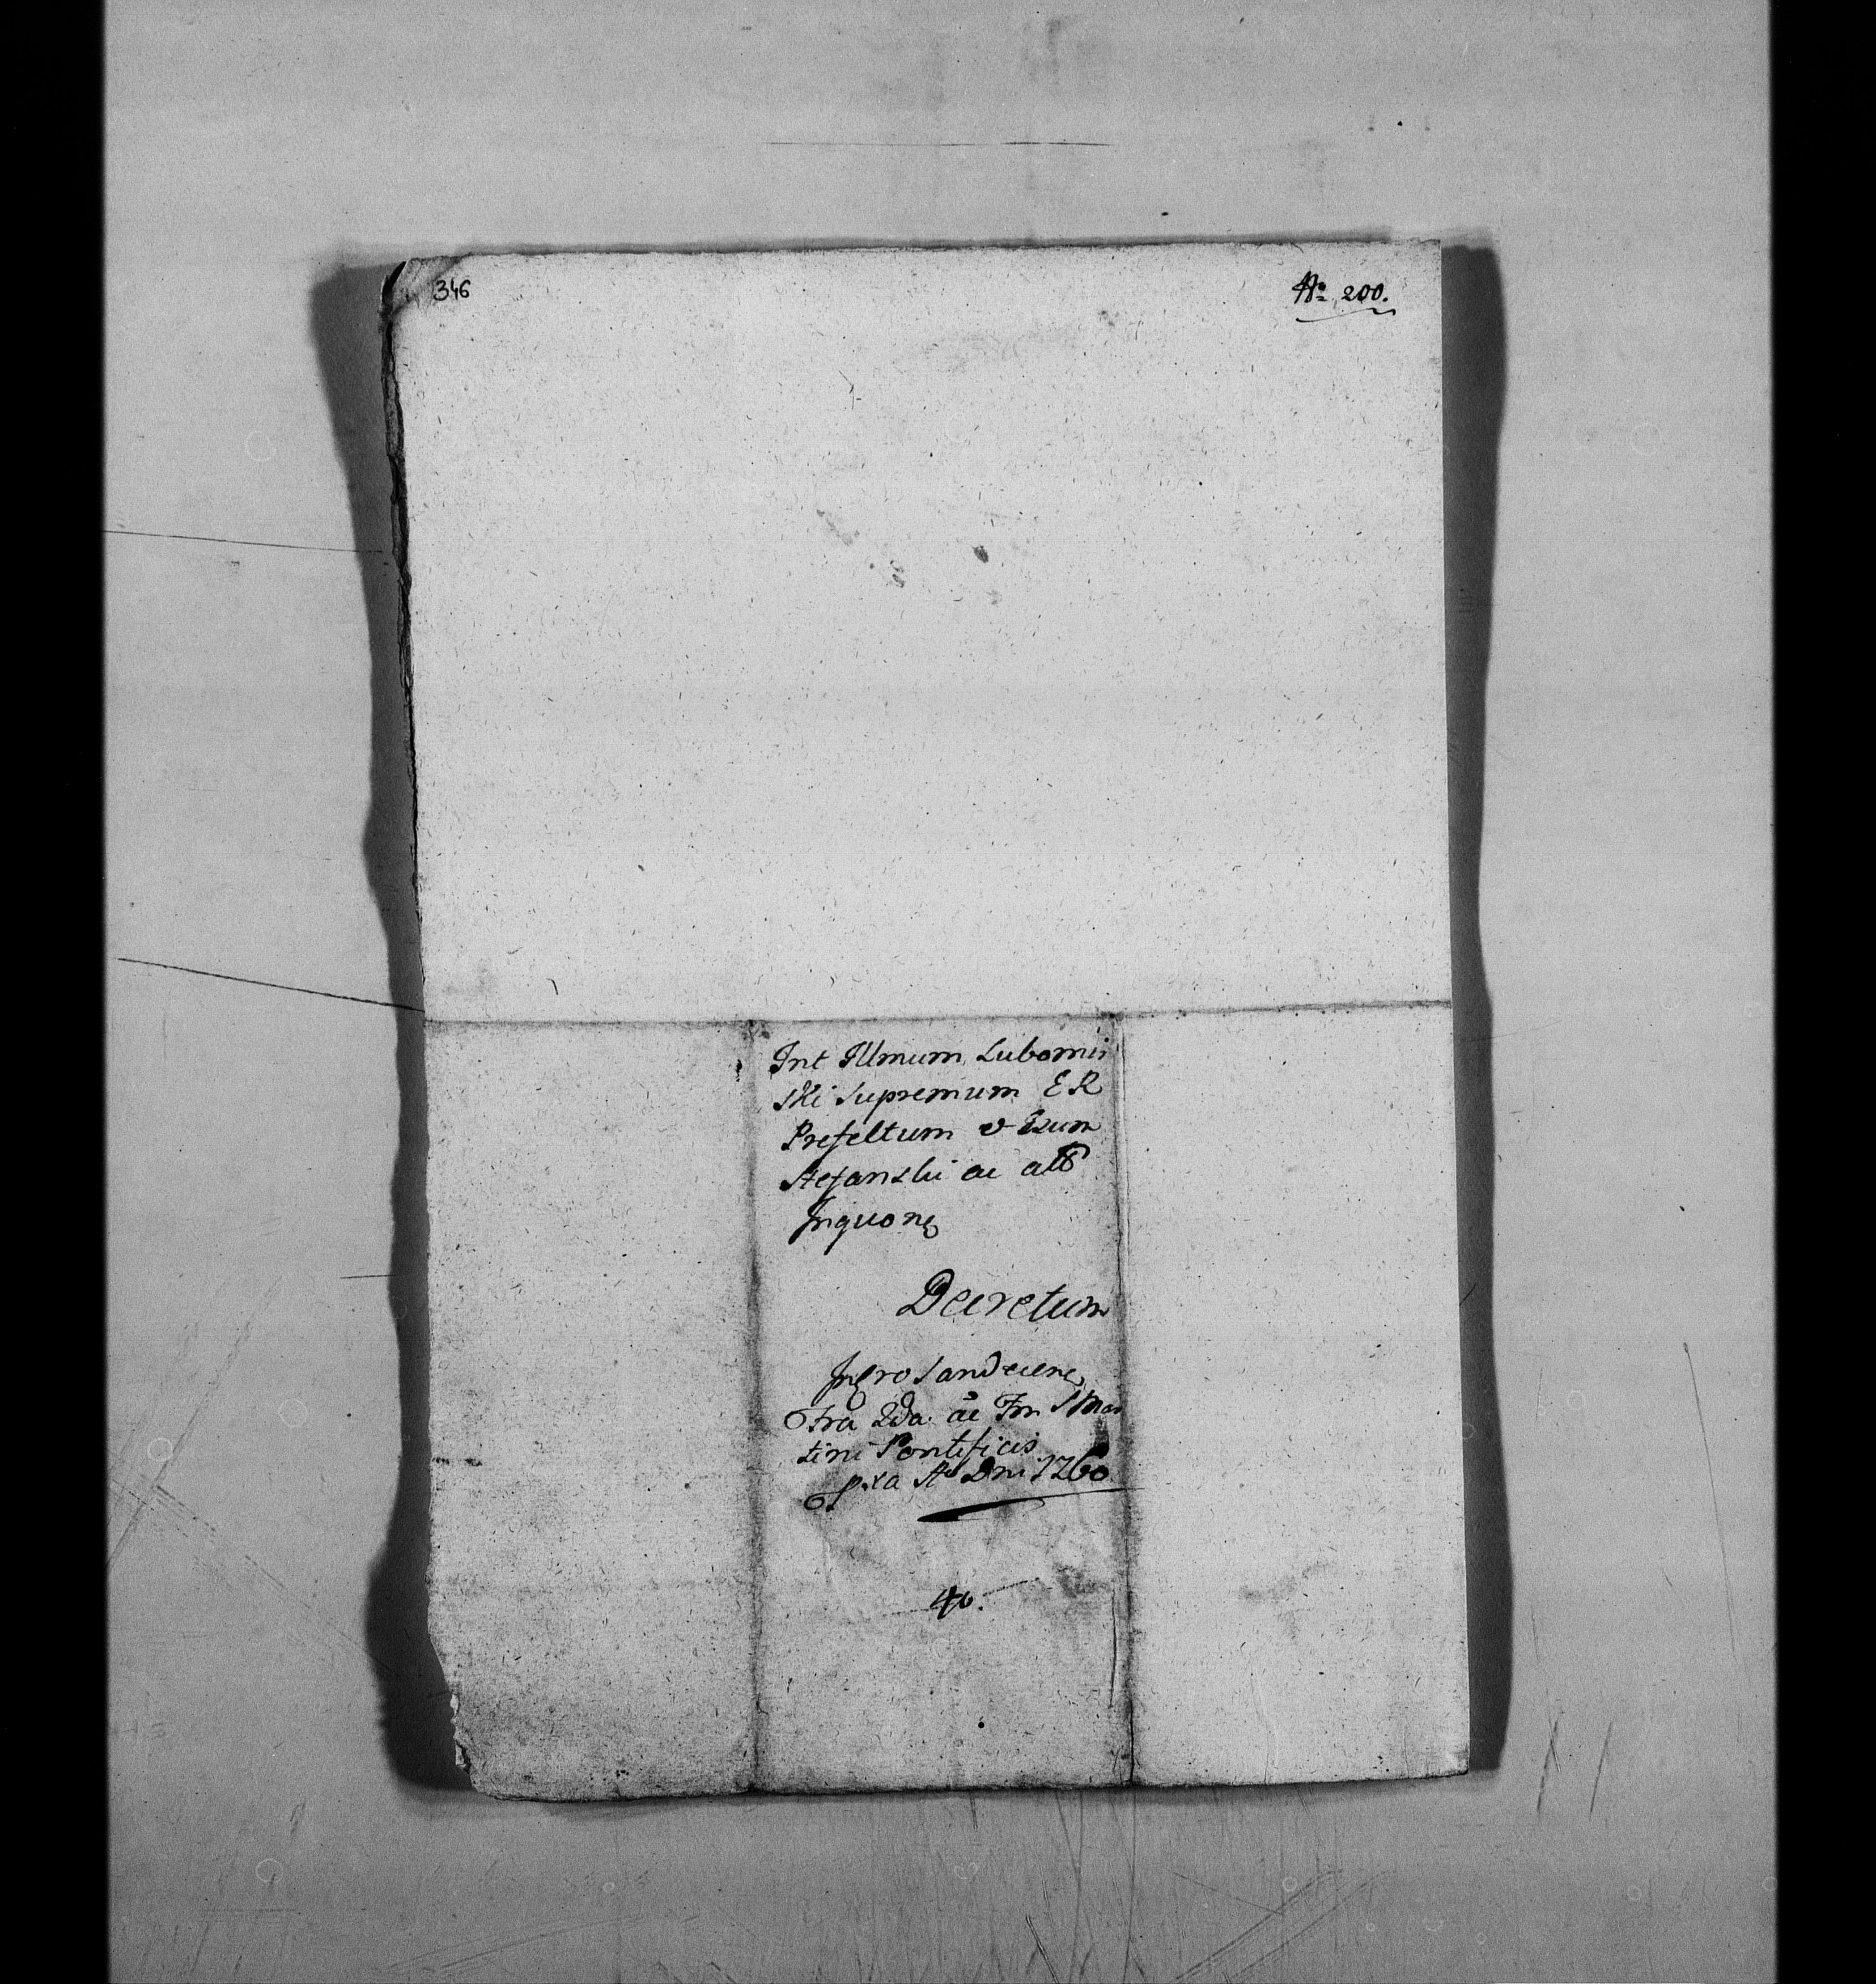 346
No 200.
Int Illmum Lubomir
ski Supremum E R
Prefectum & Gsum
Stefanski ac alt
Inquone
Decretum
Sandecen
Fra 2da. ac Fm S Mar
tini Pontificis
pxa Ao Dni 1760
40.